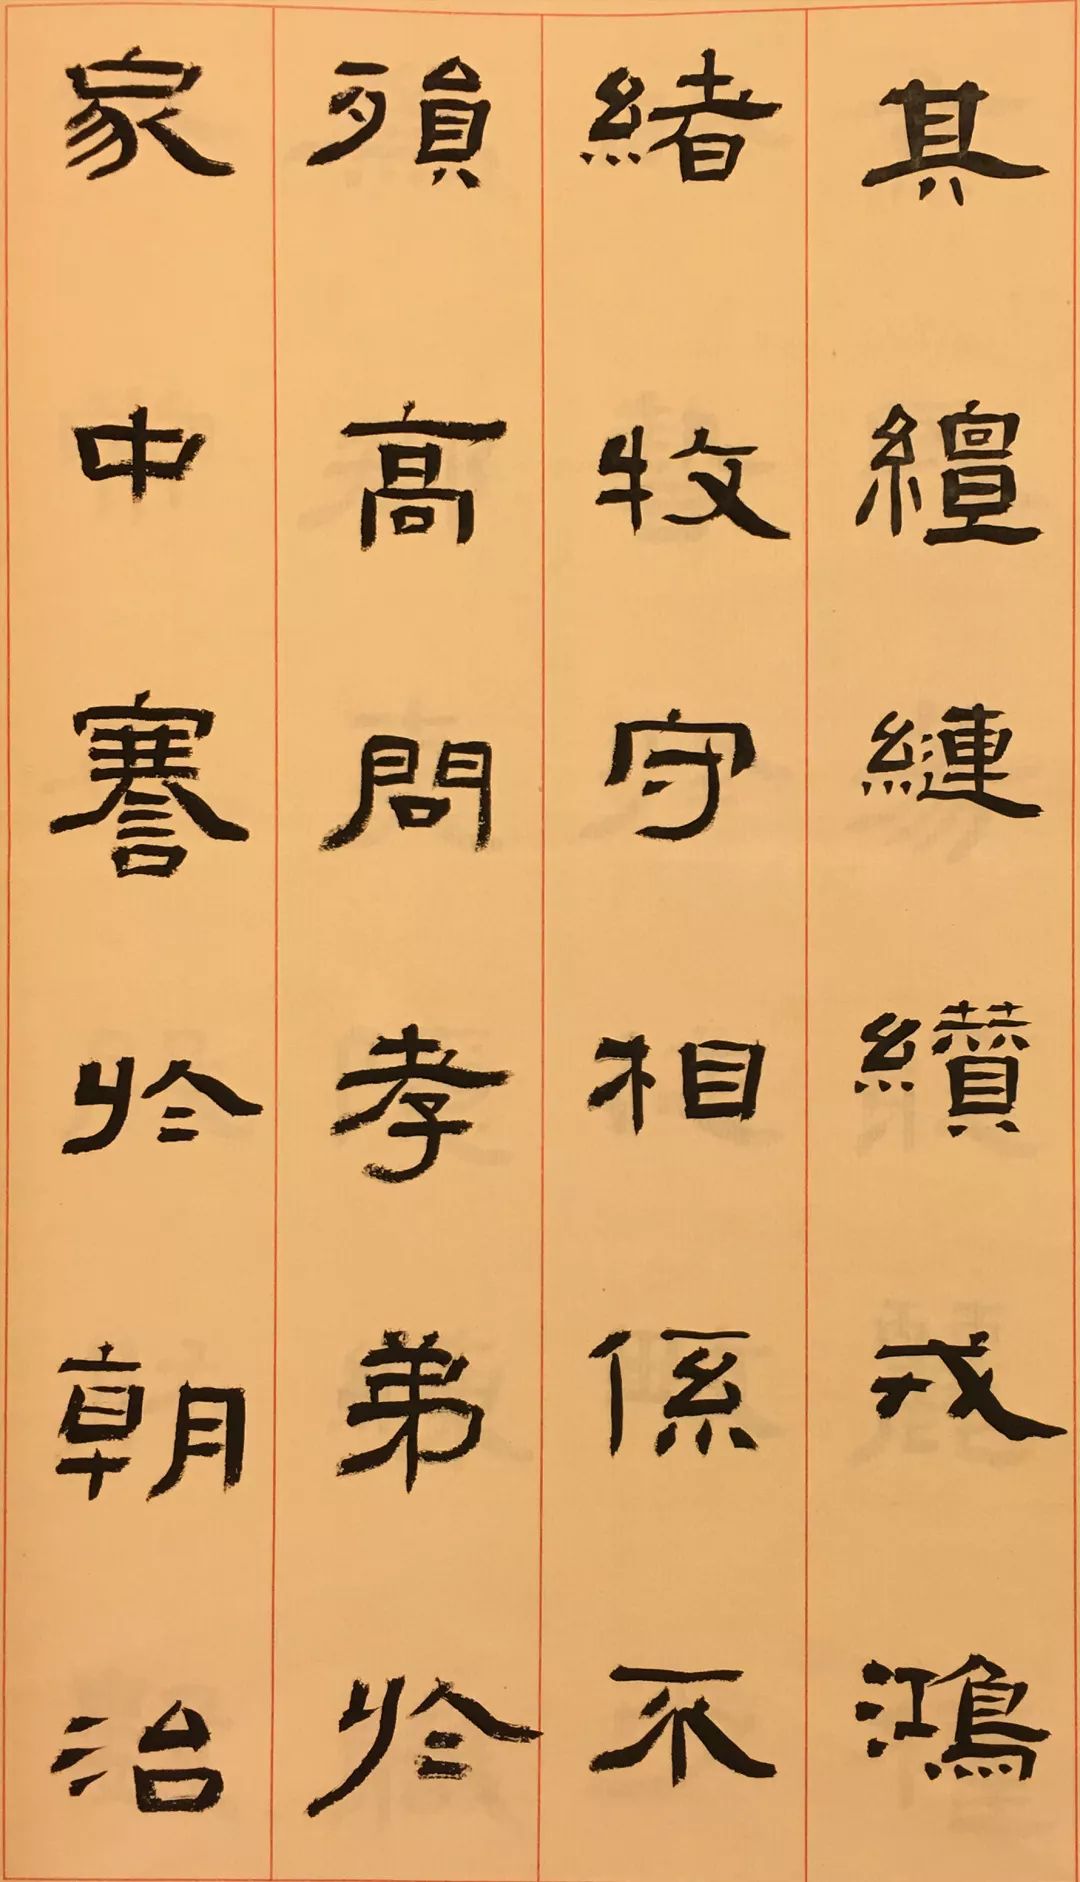 其繵縺纘戎鴻
緒牧守相係不
殞高問孝弟於
家中謇於朝治